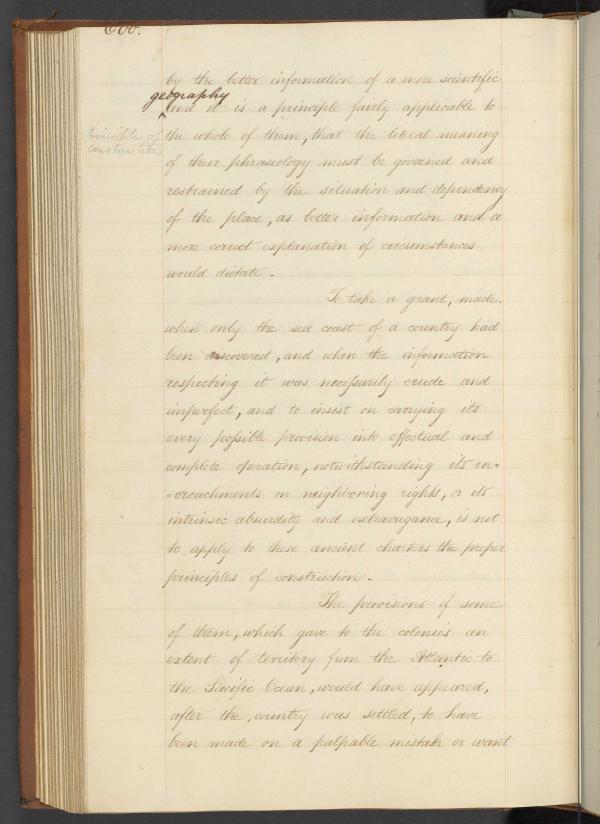 by the better information of a more scientific
geography
and it is a principle fairly applicable to
Principle of
construction
the whole of them, that the literal meaning
of their phraseology must be governed and
restrained by the situation and dependency
of the place, as better information and a
more correct explanation of circumstances
would dictate.
To take a grant, made
when only the sea coast of a country had
been discovered, and when the information
respecting it was necessarily crude and
imperfect, and to insist on carrying its
every possible provision into effectual and
complete operation, notwithstanding its en=
=croachments on neighboring rights, or its
intrinsic absurdity and extravagance, is not
to apply to these ancient charters the proper
principles of construction.
The provisions of some
of them, which gave to the colonies an
extent of territory from the Atlantic to
the Pacific Ocean, would have appeared,
after the country was settled, to have
been made on a palpable mistake or want